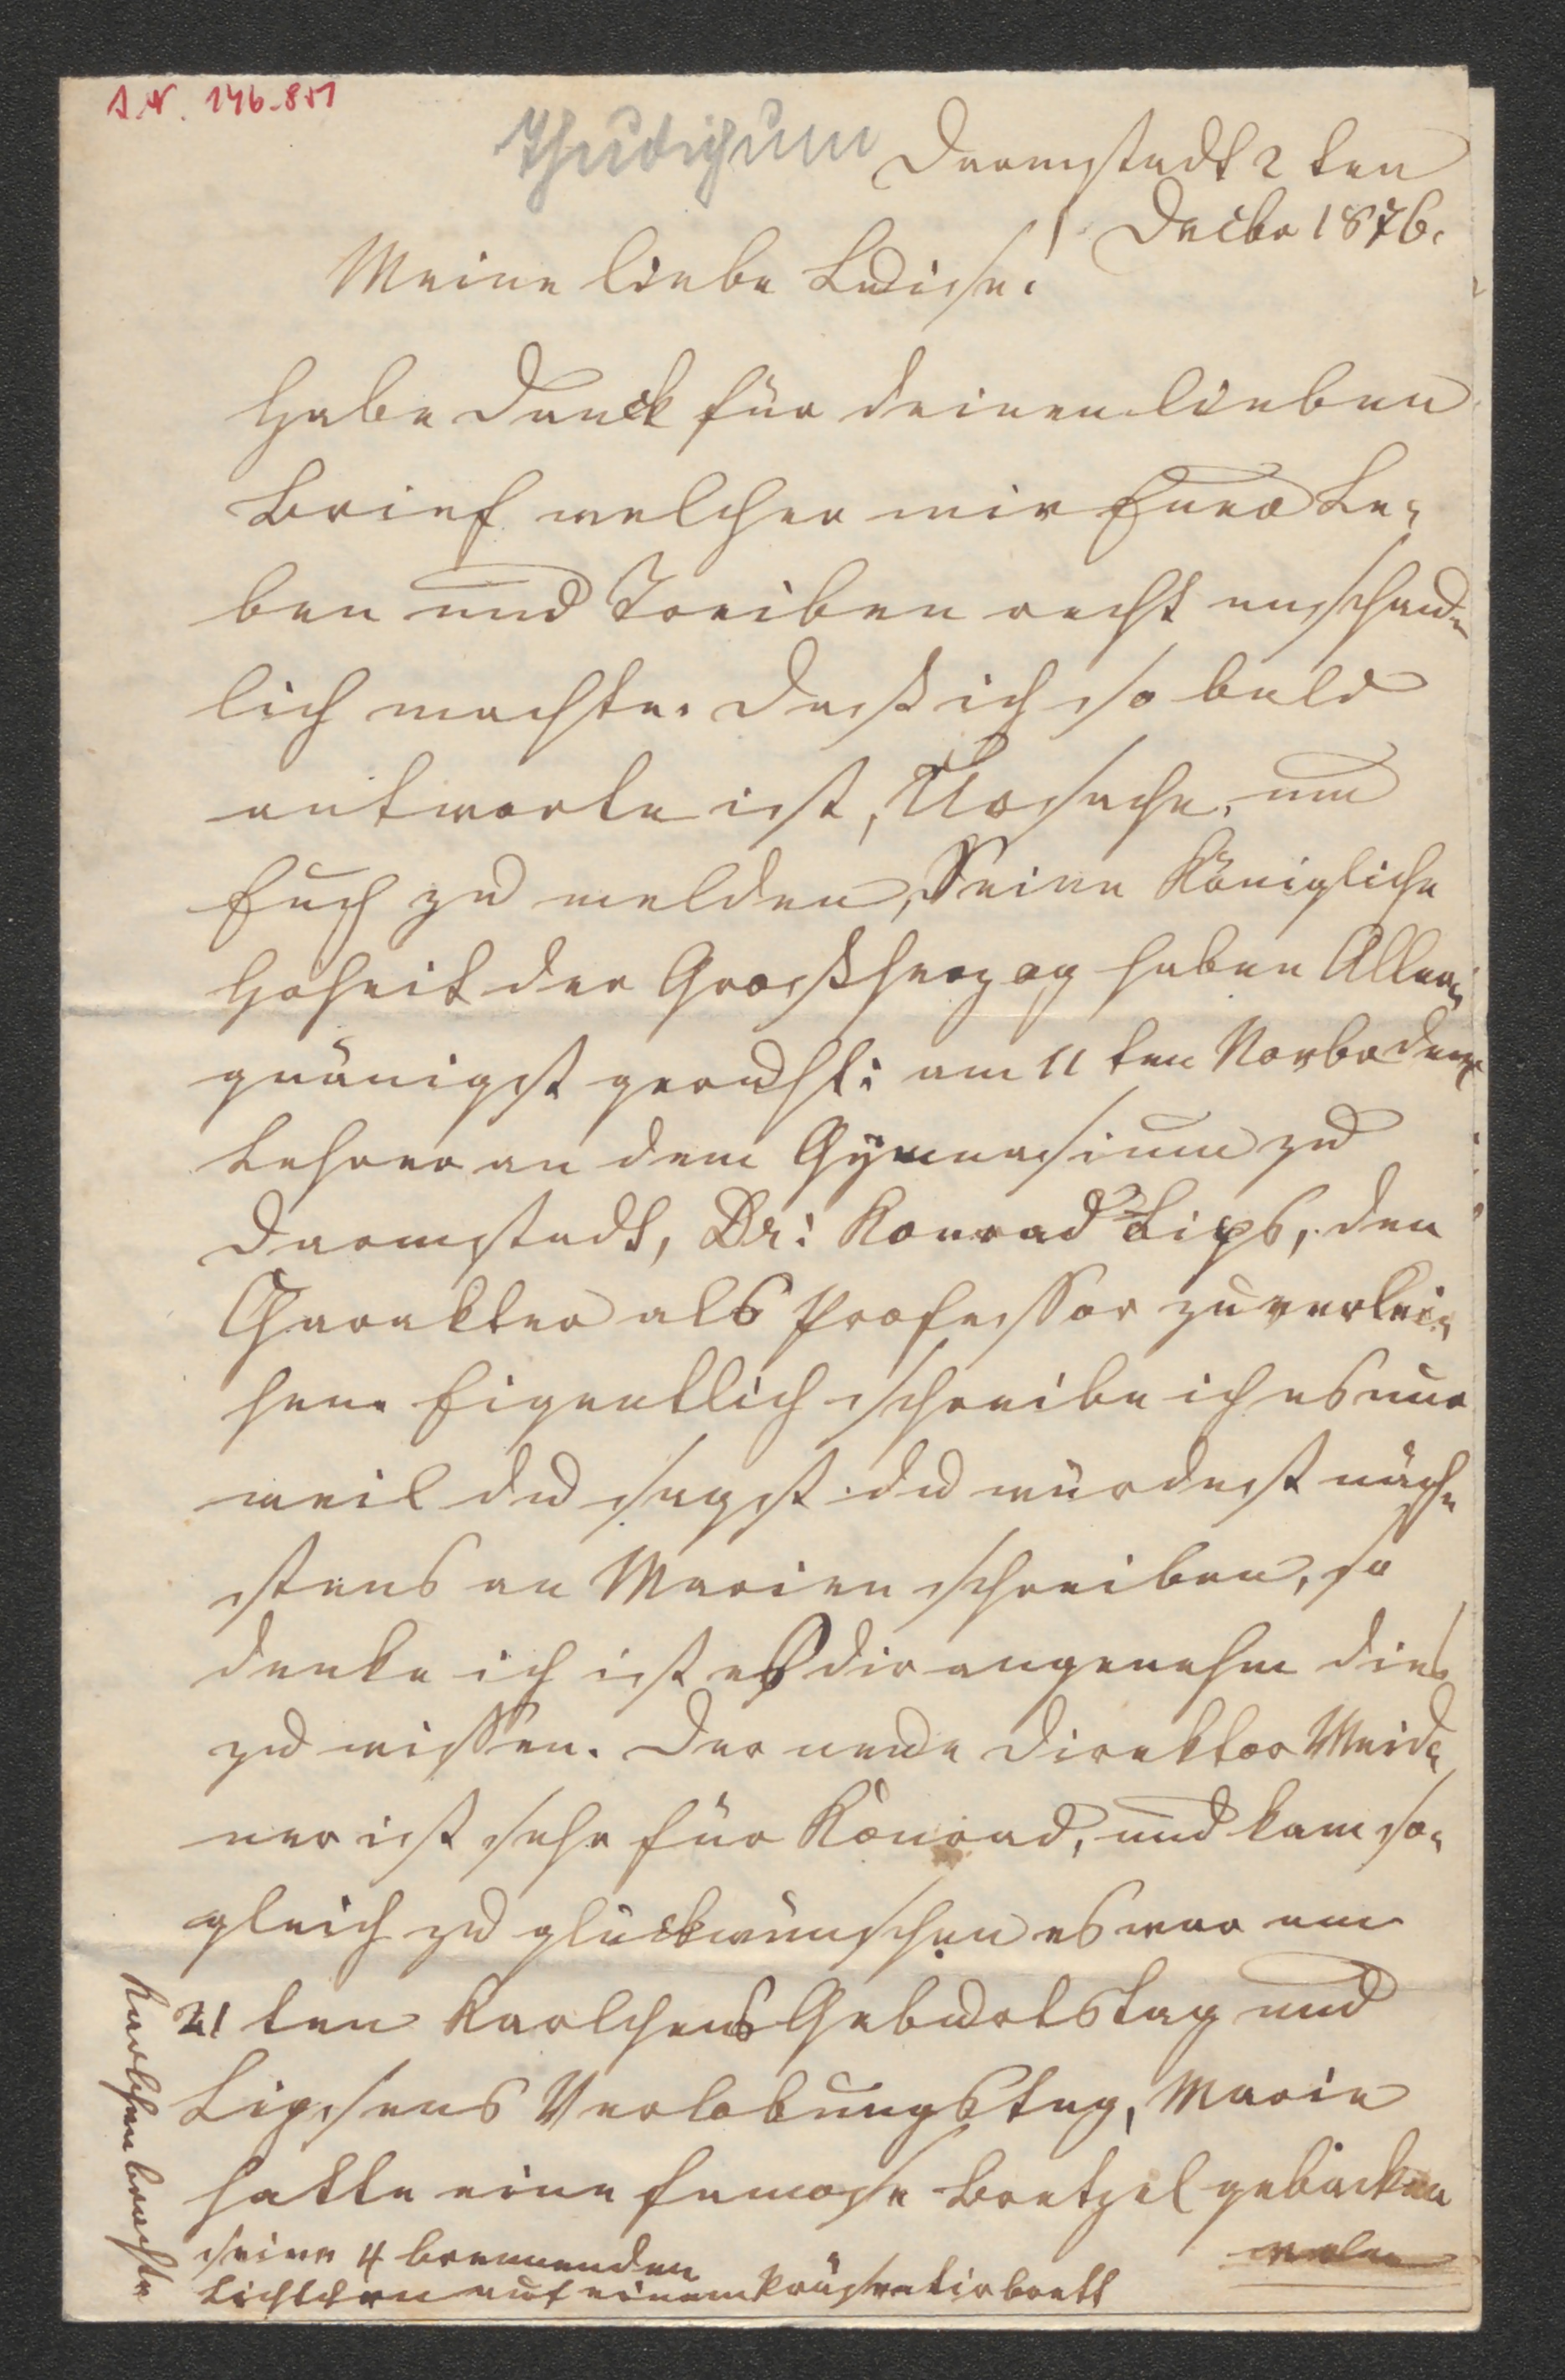 A.N. 146.851
Thudichum
Darmstadt 2ten
Decbr 1876.
Meine liebe Luise!
Habe Danck für deinen lieben
Brief welcher mir Euer Le-
ben und Treiben recht anschau-
lich machte. Daß ich so bald
antworte ist, Ursache, um
Euch zu melden, Seine Königliche
Hoheit der Großherzog haben Aller-
gnänigst geruht: am 11ten Novbr dem
Lehrer an dem Gymnasium zu
Darmstadt, Dr: Konrad Lips, den
Charakter als Professor zu verlei-
hen. Eigentlich schreibe ich es nur
weil du sagst du würdest näch-
stens an Marien schreiben, so
denke ich ist es dir angenehm dies
zu wissen. Der neue Direktor Weid-
ner ist sehr für Konrad, und kam so-
gleich zu glückwünschen es war am
21ten Karlchens Geburtstag und
Lipsens Verlobungstag, Marie
hatte eine famose Bretzel gebacken
Karlchen brachte
seine 4 brennenden
Lichtchen auf einem Präsentirbrett